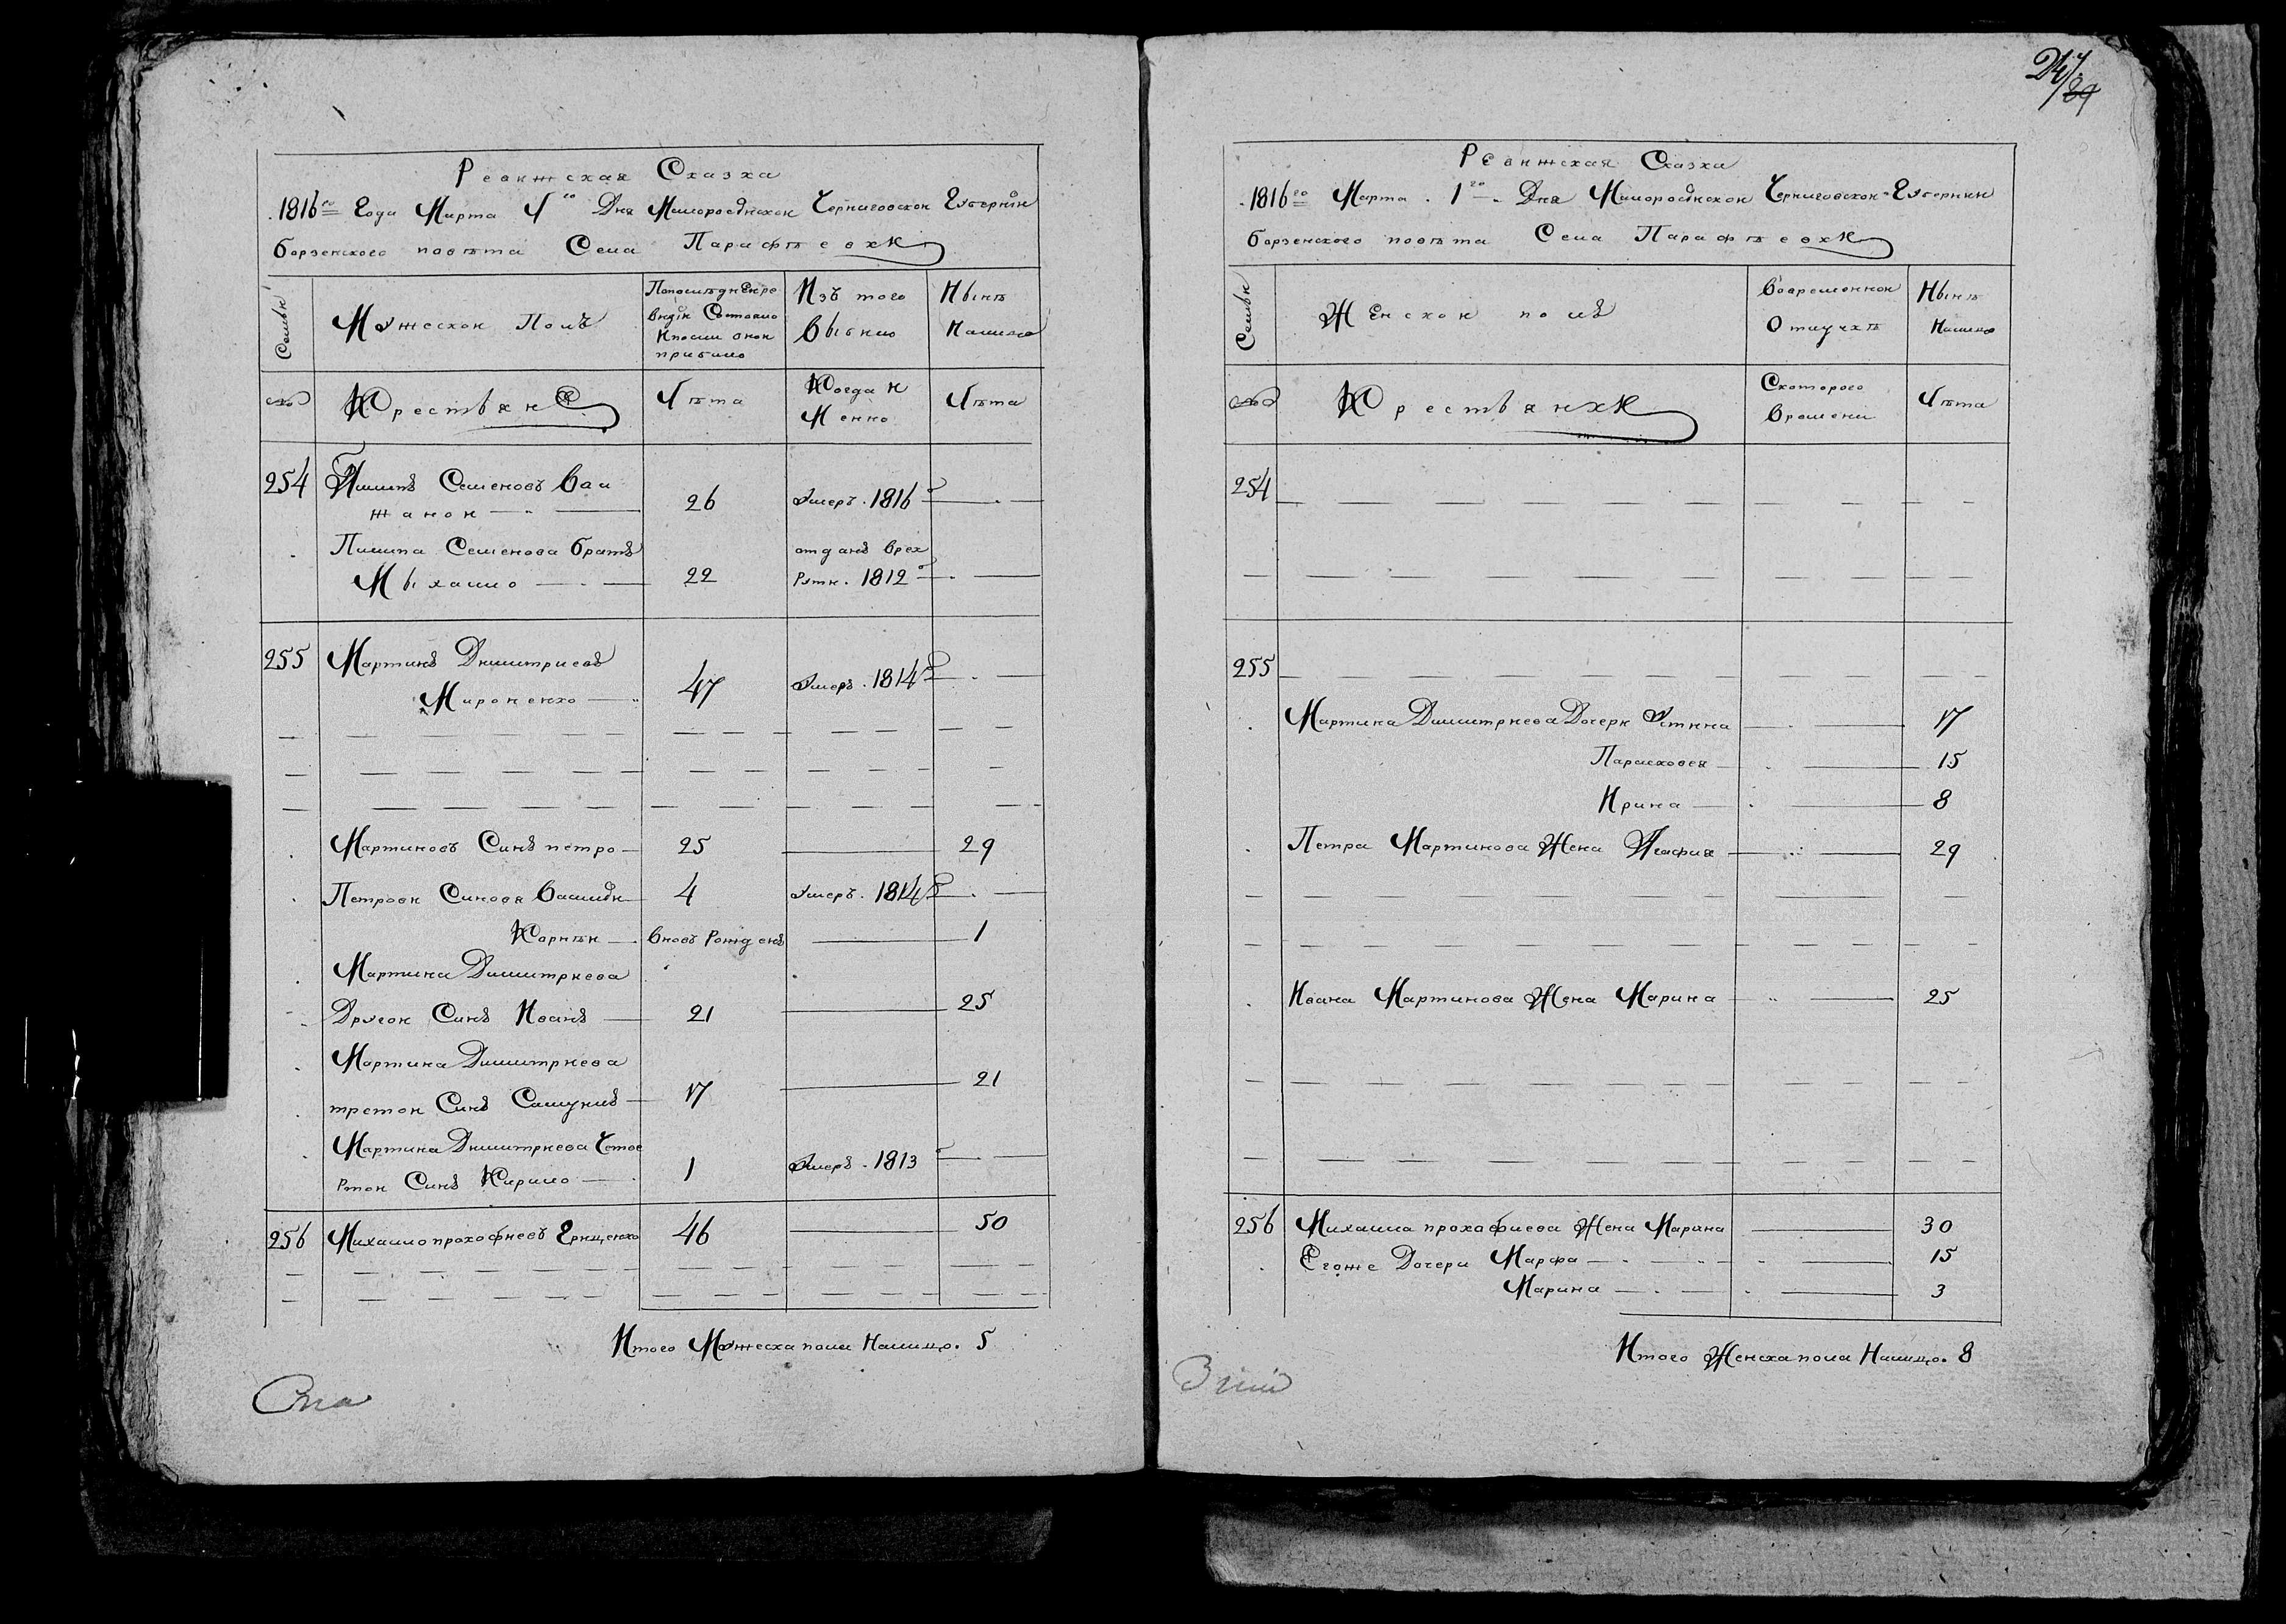 Ревижская Сказка
1816го Года Марта 1го Дня Малоросійской Черниговской Губерніи
борзенского повѣта Села Парафѣевки
Семьи
Мужеской Полъ
Попослѣдней ре
визіи Состояло
и после оной
прибыло
Изъ того
Выбыло
Нынѣ
Налицо
№
Крествяне
Лѣта
Когда и
Менно
Лѣта
254
Пилипъ Семеновъ Ва
жаной
26
Умеръ. 1816
Пилипа Семенова братъ
Мыхайло
22
отданъ врек
Рути. 1812
255
Мартинъ Димитриевъ
Мироненко
47
Умеръ. 1814
Мартиновъ Синъ петро
25
29
Петрови Синовя Василій
4
Умеръ. 1814
Корнѣй
вновъ Рожденъ
1
Мартина Димитриева
Другой Синъ Иванъ
21
25
Мартина Димитриева
третой Синъ Самуилъ
17
21
Мартина Димитриева Четве
ртой Синъ Кирило
1
Умеръ. 1813
256
Михайло прокофиевъ Грищенко
46
50
Итого Мужеска пола Налицо. 5
24
89
Ревижская Сказка
1816го Марта. 1го Дня Малоросійской Черниговской Губернии
борзенского повѣта Села Парафѣевки
Семьи
Женской полъ
Вовременной
Отлучкѣ
Нынѣ
Налицо
№
Крествянки
Скоторого
Времени
Лѣта
254
255
Мартина Димитриева Дочери Устина
17
Парасковея
15
Ирина
8
Петра Мартинова Жена Агафия
29
Ивана Мартинова Жена Марина
25
256
Михайла прокофиева Жена Марина
30
Егоже Дочери Марфа
15
Марина
3
Итого Женска пола Налицо. 8